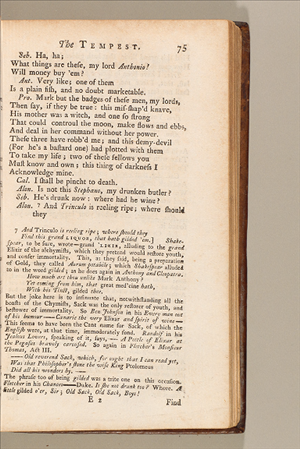 The TEMPEST. 75
Seb. Ha, ha;
What things are these, my lord Anthonio!
Will money buy 'em?
Ant. Very like; one of them
Is a plain fish, and no doubt marketable.
Pro. Mark but the badges of these men, my lords,
Then say, if they be true: this mis-shap'd knave,
His mother was a witch, and one so strong
That could controul the moon, make flows and ebbs,
And deal in her command without her power.
These three have robb'd me; and this demy-devil
(For he's a bastard one) had plotted with them
To take my life; two of these fellows you
Must know and own; this thing of darkness I
Acknowledge mine.
Cal. I shall be pincht to death.
Alon. Is not this Stephano, my drunken butler?
Seb. He's drunk now: where had he wine?
Alon. 7 And Trinculo is reeling ripe; where should
they
7 And Trinculo is reeling ripe; where should they
Find this grand LIQUOR, that hath gilded 'em.] Shake-
spear, to be sure, wrote—grand 'LIXIR, alluding to the grand
Elixir of the alchymists, which they pretend would restore youth,
and confer immortality. This, as they said, being a preparation
of Gold, they called Aurum potabile; which Shakespear alluded
to in the word gilded; as he does again in Anthony and Cleopatra.
How much art thou unlike Mark Anthony?
Yet coming from him, that great med'cine hath,
With his Tinct, gilded thee.
But the joke here is to insinuate that, notwithstanding all the
boasts of the Chymists, Sack was the only restorer of youth, and
bestower of immortality. So Ben Johnson in his Every man out
of his humour—Canarie the very Elixar and spirit of wine—
This seems to have been the Cant name for Sack, of which the
English were, at that time, immoderately fond. Randolf in his
Jealous Lovers, speaking of it, says,—A Pottle of Elixar at
the Pegasus bravely caroused. So again in Fletcher's Monsieur
Thomas, Act III.
—Old reverend Sack, which, for ought that I can read yet,
Was that Philosopher's stone the wise King Ptolomeus
Did all his wonders by.—
The phrase too of being gilded was a trite one on this occasion.
Fletcher in his Chances—Duke. Is she not drunk too? Whore. A
little gilded o'er, Sir; Old Sack, Old Sack, Boys!
E 2 Find